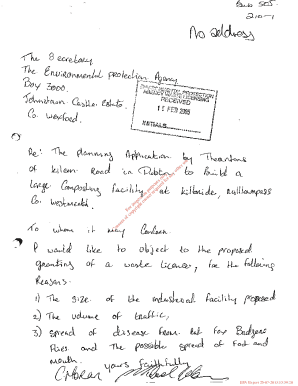 Sub 505
210-1
No address
The Secretary
The Environmental protection Agency
Box 3000.
Johnstown Castle Estate.
Co. Wexford.
ENVIRONMENTAL PROTECTION
AGENCY
RECEIVED
11 FEB 2005
INITIALS
Re: The planning Application by Thorntons
of Kileen Road in Dublin to build a
large Composting facility at Kilbride, Mullingar
Co. Westmeath.
To whom it may Concern.
I would like to object to the proposed
granting of a waste licence, for the following
Reasons.
1) The size of the industrial facility proposed
2) The volume of traffic,
3) Spread of disease from. Rat Fox Badgers
Flies and The possible spread of Foot and
mouth.
yours faithfully